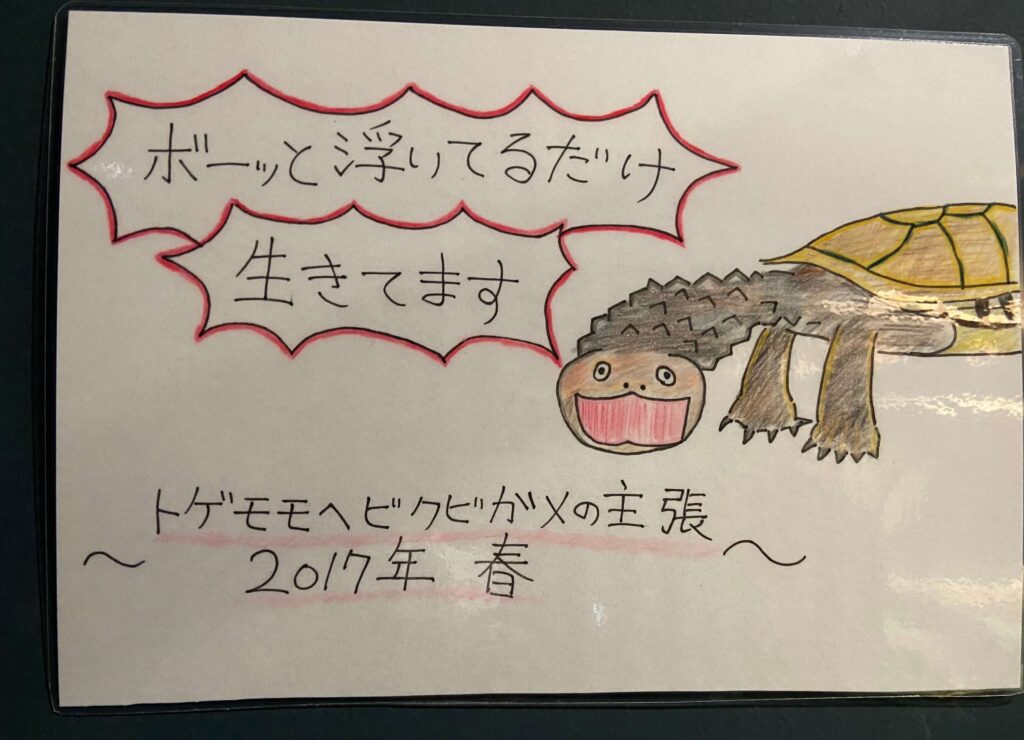 ボーッと浮いてるだけ
生きてます
トゲモモヘビクビガメの主張
～ 2017年 春 ～